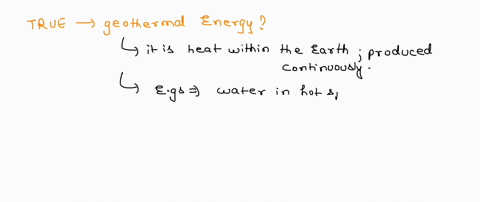 TRUE → geothermal Energy?
↳ it is heat within the Earth; produced
continuously.
↳ E.gs ⇒ water in hot s